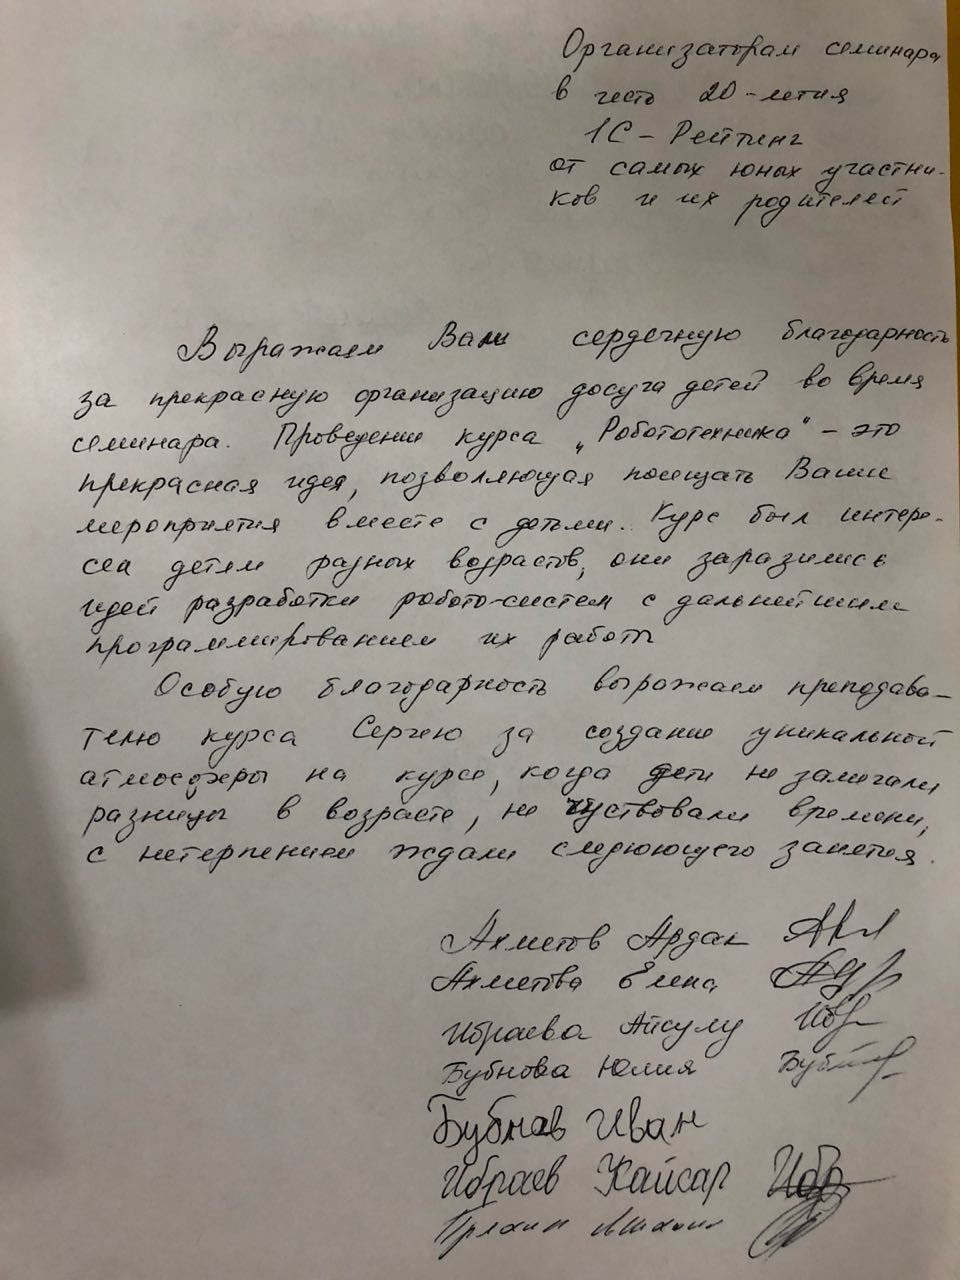 Организаторам семинара
в честь 20-летия
1С-Рейтинг
от самых юных участни-
ков и их родителей
Выражаем Вам сердечную благодарность
за прекрасную организацию досуга детей во время
семинара. Проведение курса „Робототехника“ - это
прекрасная идея, позволяющая посещать Ваши
мероприятия вместе с детьми. Курс был интере-
сен детям разных возрастов, они заразились
идей разработки робото-систем с дальнейшим
программированием их работ
Особую благодарность выражаем преподава-
телю курса Сергею за создание уникальной
атмосферы на курсе, когда дети не замечали
разницы в возрасте, не чуствовали времени,
с нетерпением ждали следующего занятия.
Ахметов Ардак
Ахметова Елена
Ибраева Айсулу
Бубнова Юлия
Бубнов Иван
Ибраев Кайсар